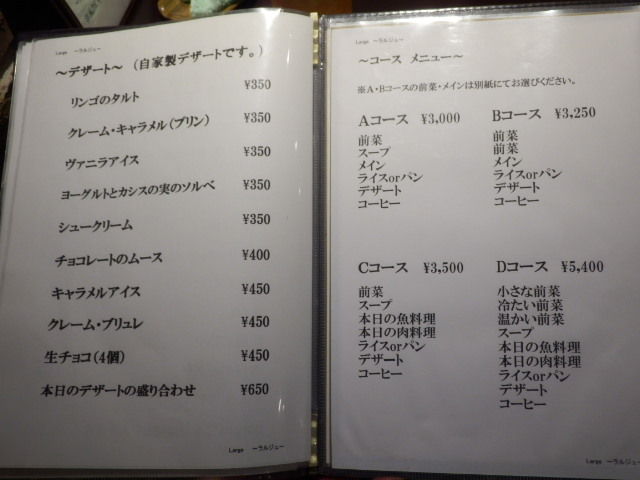 Large ーラルジュー
～デザート～（自家製デザートです。）
リンゴのタルト ¥350
クレーム・キャラメル（プリン） ¥350
ヴァニラアイス ¥350
ヨーグルトとカシスの実のソルベ ¥350
シュークリーム ¥350
チョコレートのムース ¥400
キャラメルアイス ¥450
クレーム・ブリュレ ¥450
生チョコ（4個） ¥450
本日のデザートの盛り合わせ ¥650
Large ーラルジュー
Large ーラルジュー
～コース メニュー～
※A・Bコースの前菜・メインは別紙にてお選びください。
Aコース ¥3,000
前菜
スープ
メイン
ライスorパン
デザート
コーヒー
Bコース ¥3,250
前菜
前菜
メイン
ライスorパン
デザート
コーヒー
Cコース ¥3,500
前菜
スープ
本日の魚料理
本日の肉料理
ライスorパン
デザート
コーヒー
Dコース ¥5,400
小さな前菜
冷たい前菜
温かい前菜
スープ
本日の魚料理
本日の肉料理
ライスorパン
デザート
コーヒー
Large ーラルジュー